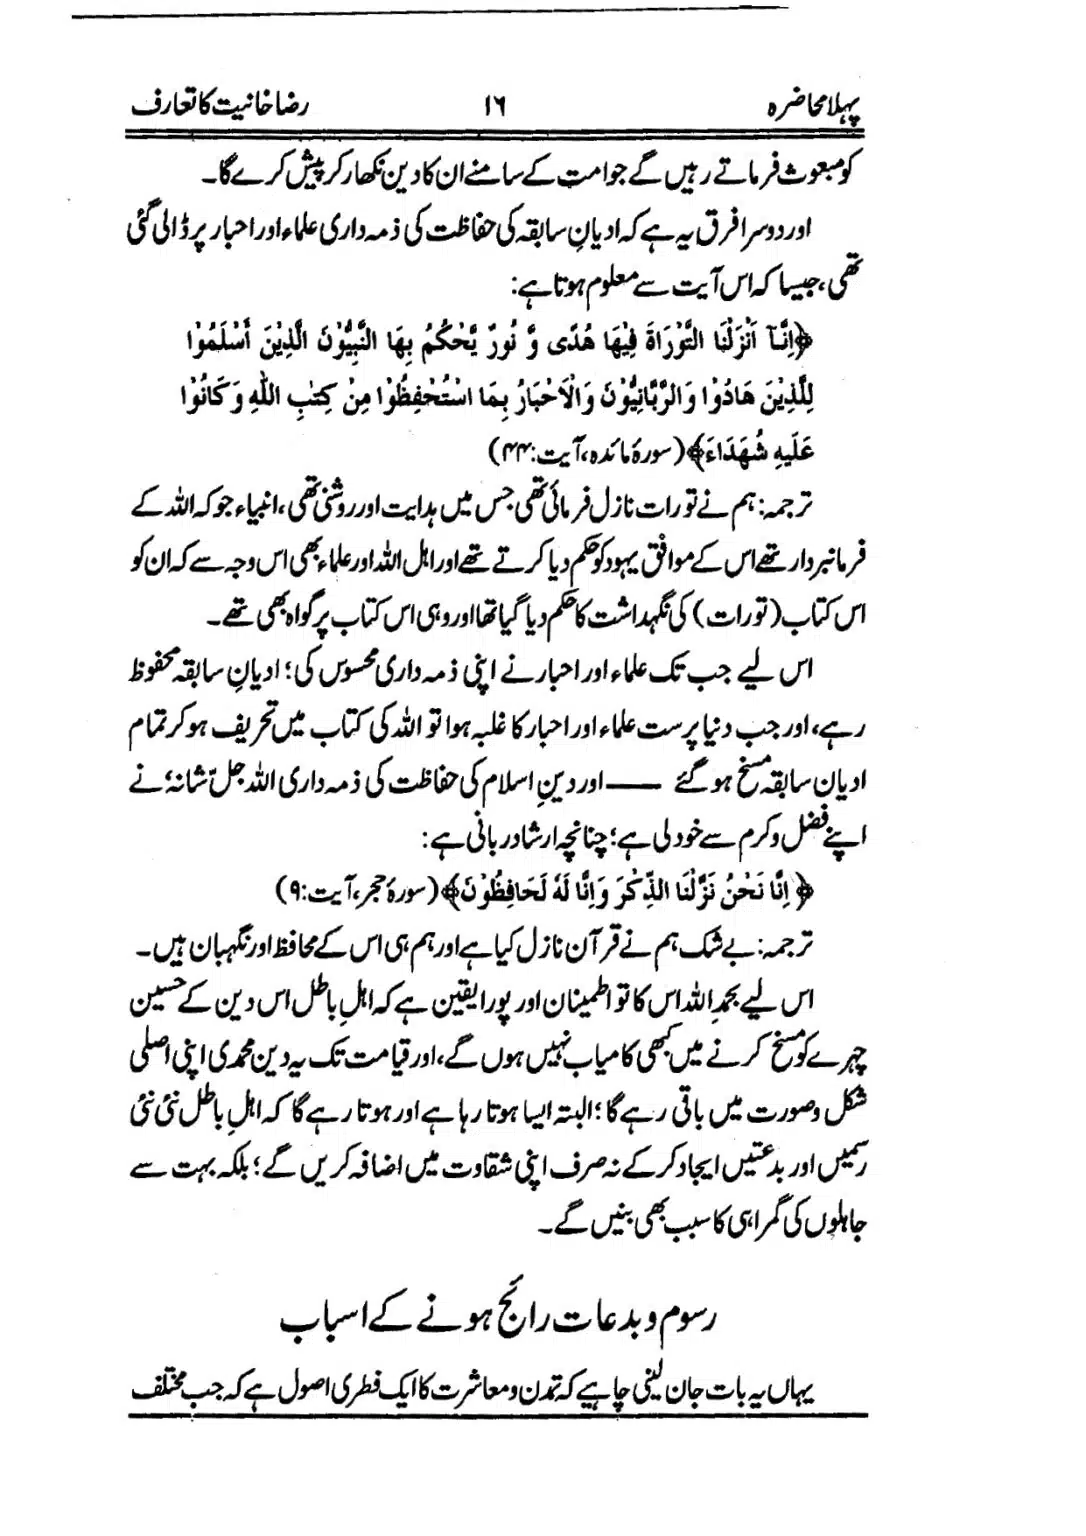 پہلا محاضرہ ۱۶ رضاخانیت کا تعارف
کو مبعوث فرماتے رہیں گے جو امت کے سامنے ان کا دین نکھار کر پیش کرے گا۔
اور دوسرا فرق یہ ہے کہ ادیانِ سابقہ کی حفاظت کی ذمہ داری علماء اور احبار پر ڈالی گئی
تھی، جیسا کہ اس آیت سے معلوم ہوتا ہے:
﴿اِنَّآ اَنْزَلْنَا التَّوْرَاةَ فِيْهَا هُدًى وَّ نُورٌ يَّحْكُمُ بِهَا النَّبِيُّوْنَ الَّذِيْنَ أَسْلَمُوْا
لِلَّذِيْنَ هَادُوْا وَالرَّبَّانِيُّوْنَ وَالْاَحْبَارُ بِمَا اسْتُحْفِظُوْا مِنْ كِتٰبِ اللّٰهِ وَكَانُوْا
عَلَيْهِ شُهَدَاءَ﴾ (سورۂ مائدہ، آیت: ۴۴)
ترجمہ: ہم نے تورات نازل فرمائی تھی جس میں ہدایت اور روشنی تھی، انبیاء جو کہ اللہ کے
فرمانبردار تھے اس کے موافق یہود کو حکم دیا کرتے تھے اور اہل اللہ اور علماء بھی اس وجہ سے کہ ان کو
اس کتاب (تورات) کی نگہداشت کا حکم دیا گیا تھا اور وہی اس کتاب پر گواہ بھی تھے۔
اس لیے جب تک علماء اور احبار نے اپنی ذمہ داری محسوس کی؛ ادیانِ سابقہ محفوظ
رہے، اور جب دنیا پرست علماء اور احبار کا غلبہ ہوا تو اللہ کی کتاب میں تحریف ہو کر تمام
ادیان سابقہ مسخ ہو گئے —— اور دینِ اسلام کی حفاظت کی ذمہ داری اللہ جلّ شانہٗ نے
اپنے فضل و کرم سے خود لی ہے؛ چنانچہ ارشاد ربانی ہے:
﴿اِنَّا نَحْنُ نَزَّلْنَا الذِّكْرَ وَاِنَّا لَهٗ لَحَافِظُوْنَ﴾ (سورۂ حجر، آیت: ۹)
ترجمہ: بے شک ہم نے قرآن نازل کیا ہے اور ہم ہی اس کے محافظ اور نگہبان ہیں۔
اس لیے بحمدِ اللہ اس کا تو اطمینان اور پورا یقین ہے کہ اہلِ باطل اس دین کے حسین
چہرے کو مسخ کرنے میں کبھی کامیاب نہیں ہوں گے، اور قیامت تک یہ دین محمدی اپنی اصلی
شکل و صورت میں باقی رہے گا؛ البتہ ایسا ہوتا رہا ہے اور ہوتا رہے گا کہ اہلِ باطل نئی نئی
رسمیں اور بدعتیں ایجاد کرکے نہ صرف اپنی شقاوت میں اضافہ کریں گے؛ بلکہ بہت سے
جاہلوں کی گمراہی کا سبب بھی بنیں گے۔
رسوم و بدعات رائج ہونے کے اسباب
یہاں یہ بات جان لینی چاہیے کہ تمدن و معاشرت کا ایک فطری اصول ہے کہ جب مختلف